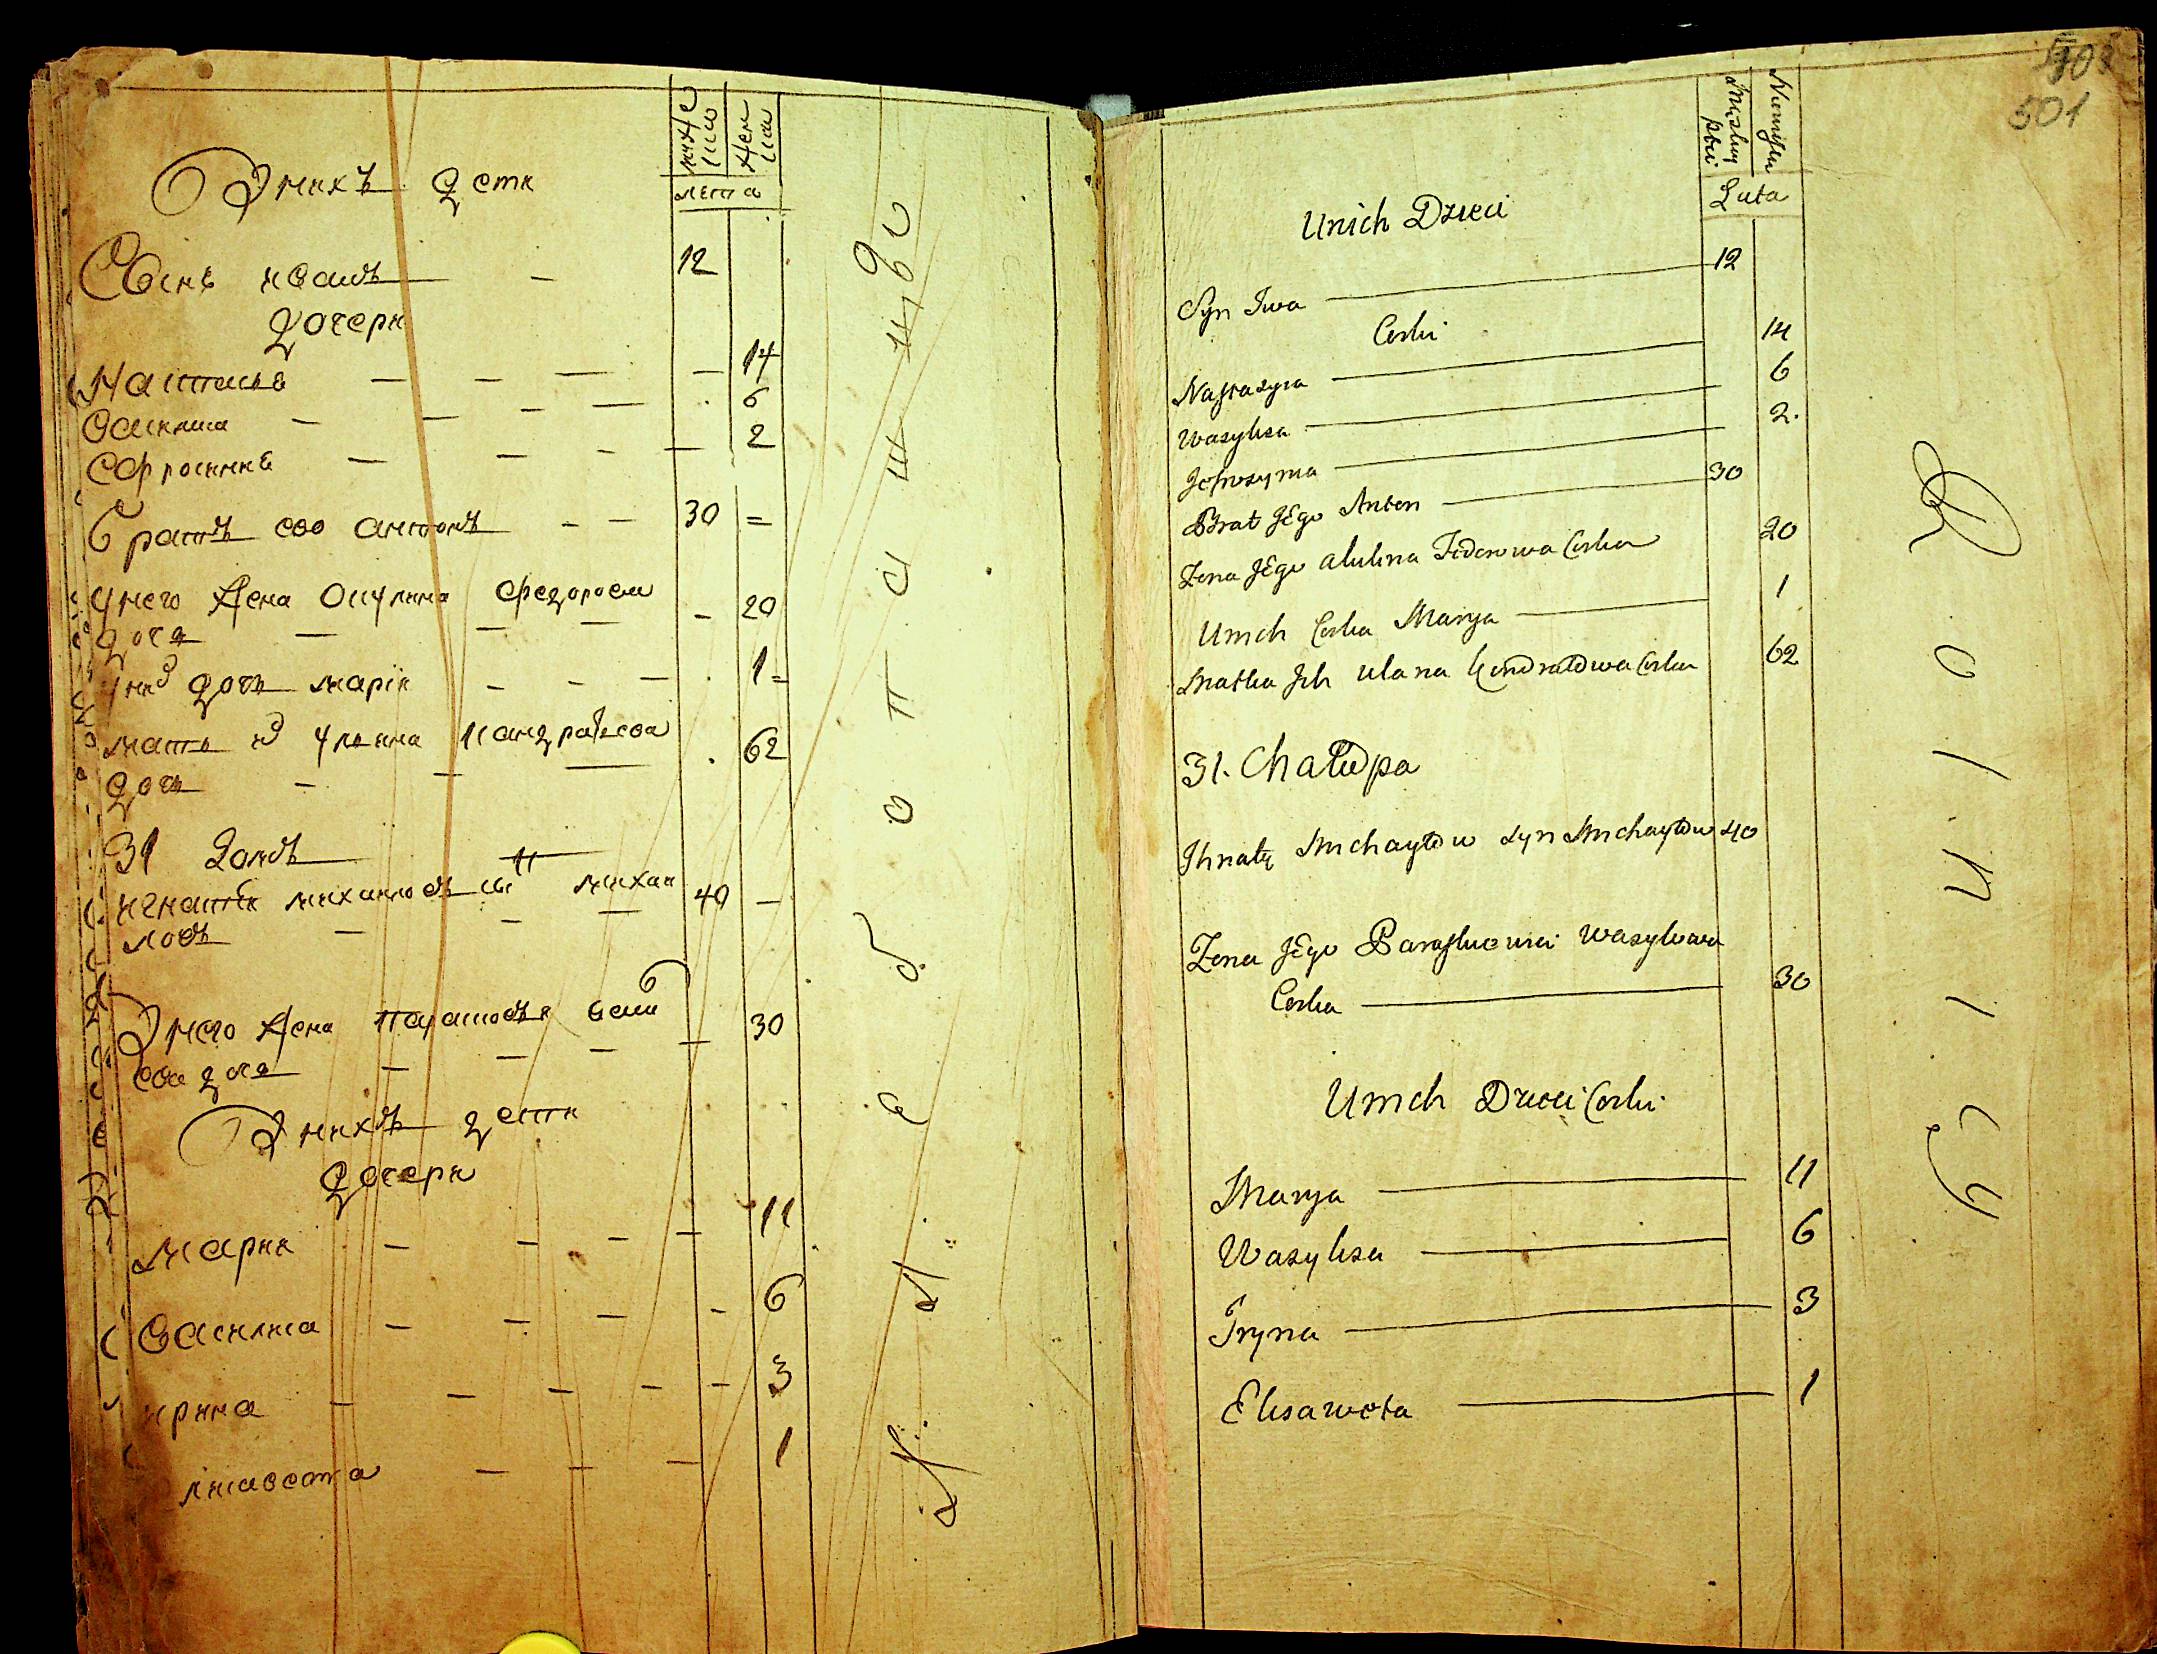 мужеска
женска
лета
У нихъ дети
Сынъ иванъ — 12
дочери
Настасья — — — — 14
Василиса — — — — 6
Офросинья — — — — 2
Братъ ево антонъ — — 30 =
унего жена Окулина Федорова
дочь — — — — 20
у них дочь марія — — — 1 =
мать их Ульяна Кандратьева
дочь — — — 62
31 Домъ
игнатьи михаиловъ сынъ михаи
ловъ — — — 40 —
У него жена Парасковья Васи
ева дочь — — — — 30
У нихъ дети
дочери
Мария — — — — 11
Василиса — — — — 6
ирина — — — — — 3
лисавета — — — 1
503
501
Luta
Unich Dzieci
Syn Iwa 12
Corki
Nastazyia 14
Wasylisa 6
Jofrozyma 2.
Brat JEgo Anton 30
Zona JEgo Akulina Fedorowa Corka 20
Unich Corka Marya 1
Matka Ich Ulana Kondratowa Corka 62
31. Chałupa
Ihnaty Michayłow syn Michayłow 40
Zona JEgo Paraskewia Wasylowa
Corka 30
Unich Dzieci Corki
Marya 11
Wasylisa 6
Iryna 3
Elisaweta 1